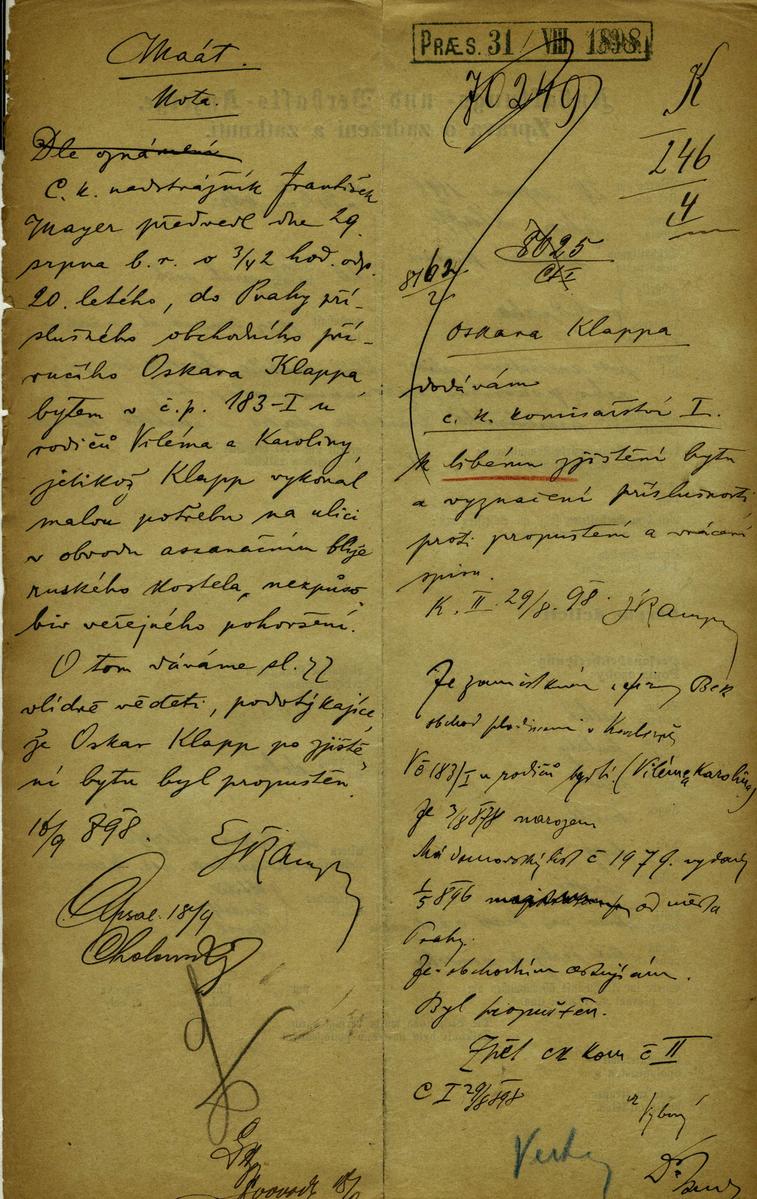 Maát.
Nota.
Dle oznámení
C. k. nadstrážník František
Mayer předvedl dne 29.
srpna b. r. o 3/4 2 hod. odp.
20. letého, do Prahy pří-
slušného obchodního pří-
ručího Oskara Klappa,
bytem v č. p. 183-I u
rodičů Viléma a Karoliny,
jelikož Klapp vykonal
malou potřebu na ulici
v obvodu assanačním blíže
ruského kostela, nezpůso
biv veřejného pohoršení.
O tom dáváme sl.
vlídně věděti, podotýkajíce,
že Oskar Klapp po zjiště-
ní bytu byl propuštěn.
16/9 898.
18/9
PRÆS. 31/VIII 1898
70249
K
246
4
8625
8162
2
Oskara Klappa
dodávám
c. k. komisařství I.
k libému zjištění bytu
a vyznačení příslušnosti
proti propuštění a vrácení
spisu.
K. II. 29/8. 98.
Je zaměstnán firmy Beck
obchod plodinami v Karlíně
V č 183/I u rodičů bydlí. (Viléma a Karolina)
Je 3/8 878 narozen
Má domovský list č 1979. vydaný
1/5 896 od města
Prahy.
Je obchodním cestujícím.
Byl propuštěn.
Zpět ck kom č II
C I 29/8 898